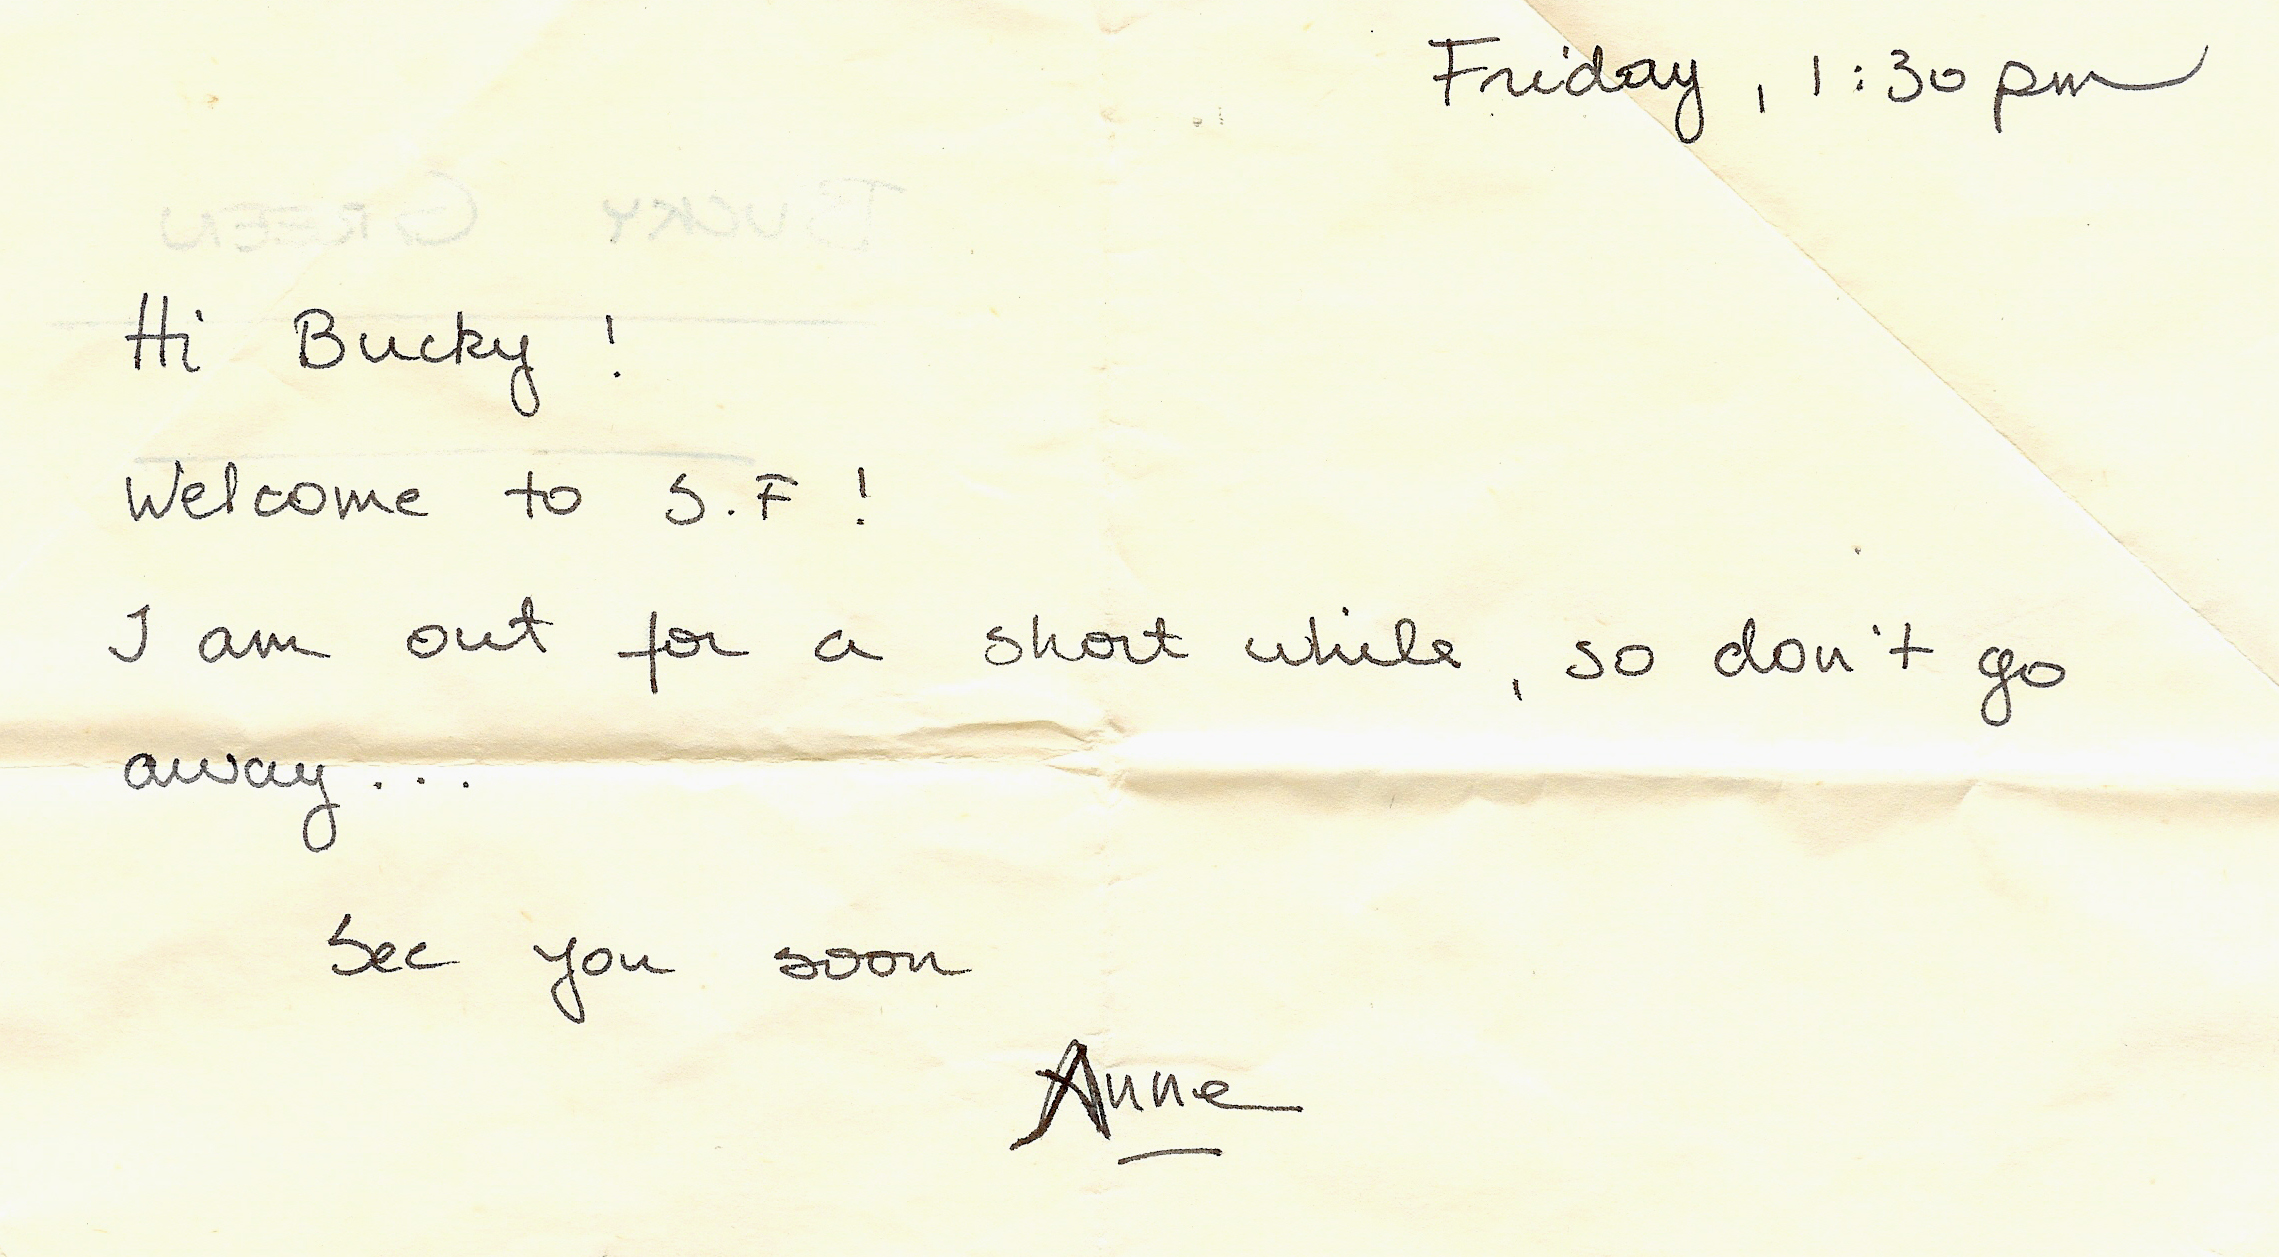 Friday, 1:30 pm
BUCKY GREEN
Hi Bucky!
Welcome to S.F!
I am out for a short while, so don't go
away...
See you soon
Anne